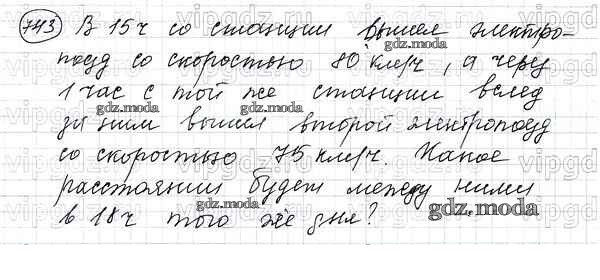 743 В 15 ч со станции вышел электро-
поезд со скоростью 80 км/ч, а через
1 час с той же станции вслед
за ним вышел второй электропоезд
со скоростью 75 км/ч. Какое
расстоянии будет между ними
в 18 ч того же дня?
gdz.moda
gdz.moda
gdz.moda
gdz.moda
gdz.moda
gdz.moda